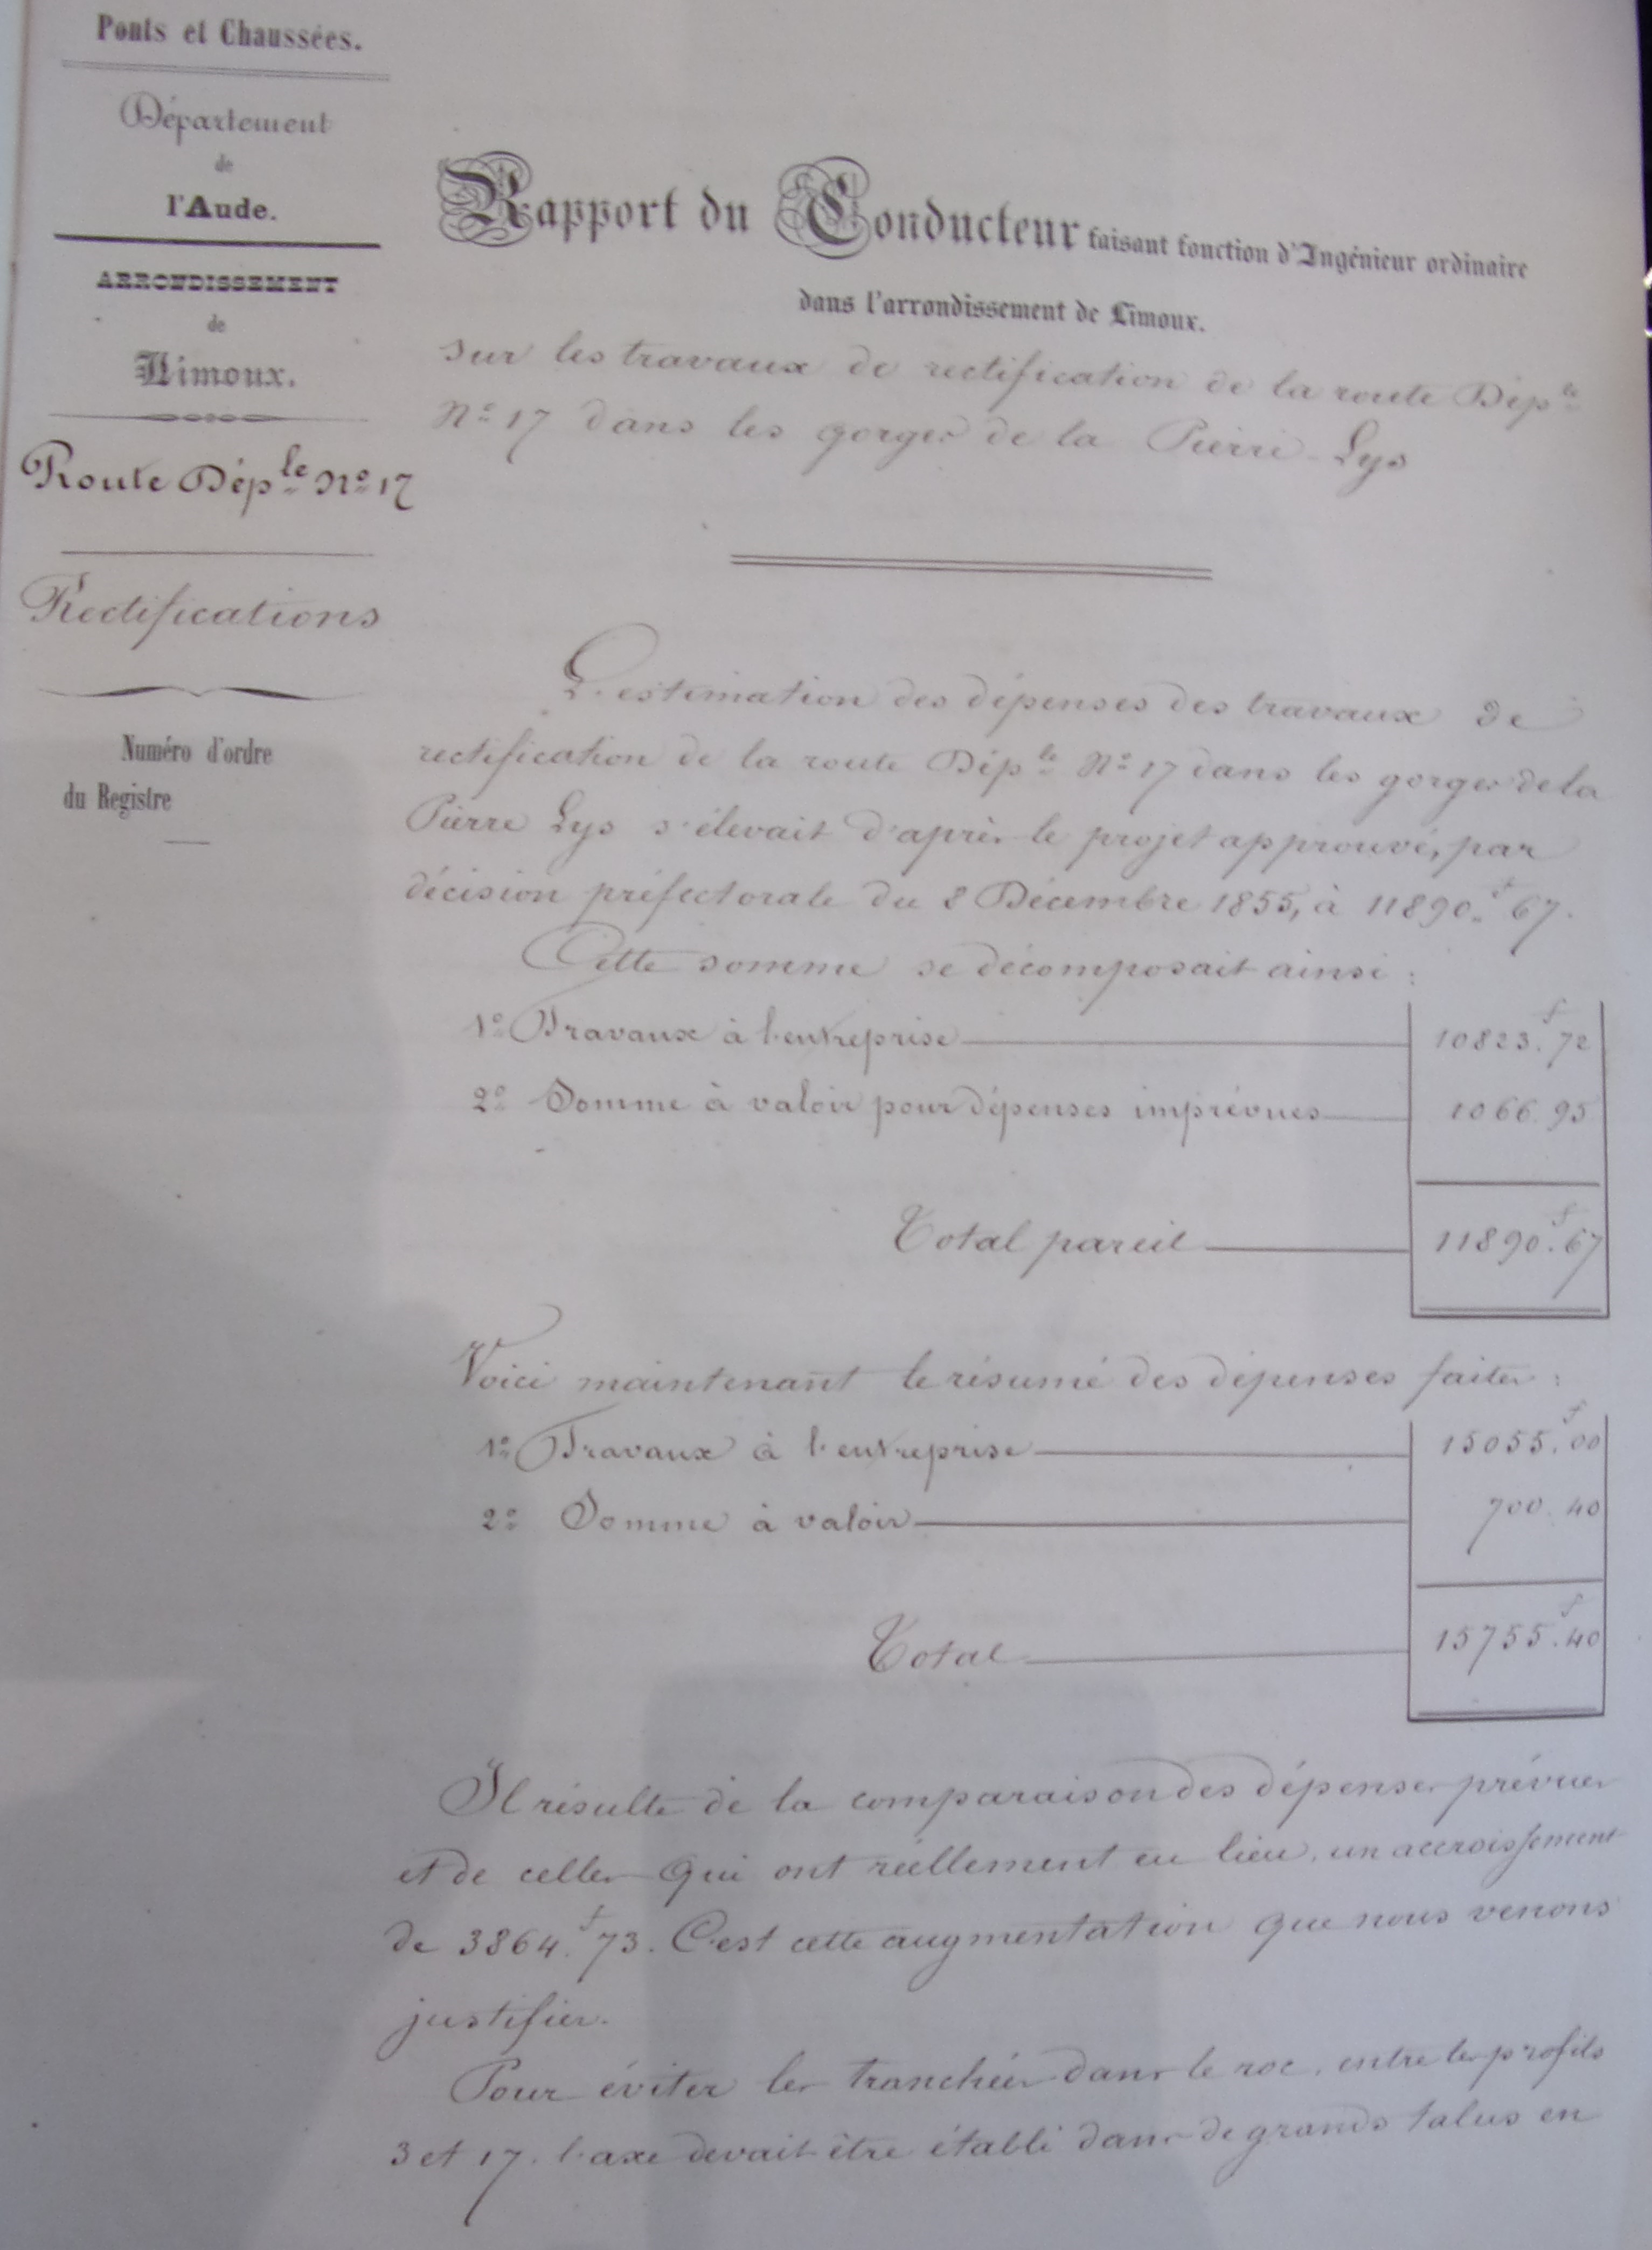 Ponts et Chaussées.
Département
de
l'Aude.
ARRONDISSEMENT
de
Limoux.
Route Dép^le N° 17
Rectifications
Numéro d'ordre
du Registre
Rapport du Conducteur faisant fonction d'Ingénieur ordinaire
dans l'arrondissement de Limoux.
sur les travaux de rectification de la route Dép^le
N° 17 dans les gorges de la Pierre-Lys
L'estimation des dépenses des travaux de
rectification de la route Dép^le N° 17 dans les gorges de la
Pierre Lys s'élevait d'après le projet approuvé, par
décision préfectorale du 8 Décembre 1855, à 11890.f 67.
Cette somme se décomposait ainsi :
1° Travaux à l'entreprise 10823.f 72
2° Somme à valoir pour dépenses imprévues 1066. 95
Total pareil 11890.f 67
Voici maintenant le résumé des dépenses faites :
1° Travaux à l'entreprise 15055.f 00
2° Somme à valoir 700. 40
Total 15755.f 40
Il résulte de la comparaison des dépenses prévues
et de celles qui ont réellement eu lieu, un accroissement
de 3864.f 73. C'est cette augmentation que nous venons
justifier.
Pour éviter les tranchées dans le roc, entre les profils
3 et 17, l'axe devait être établi dans de grands talus en